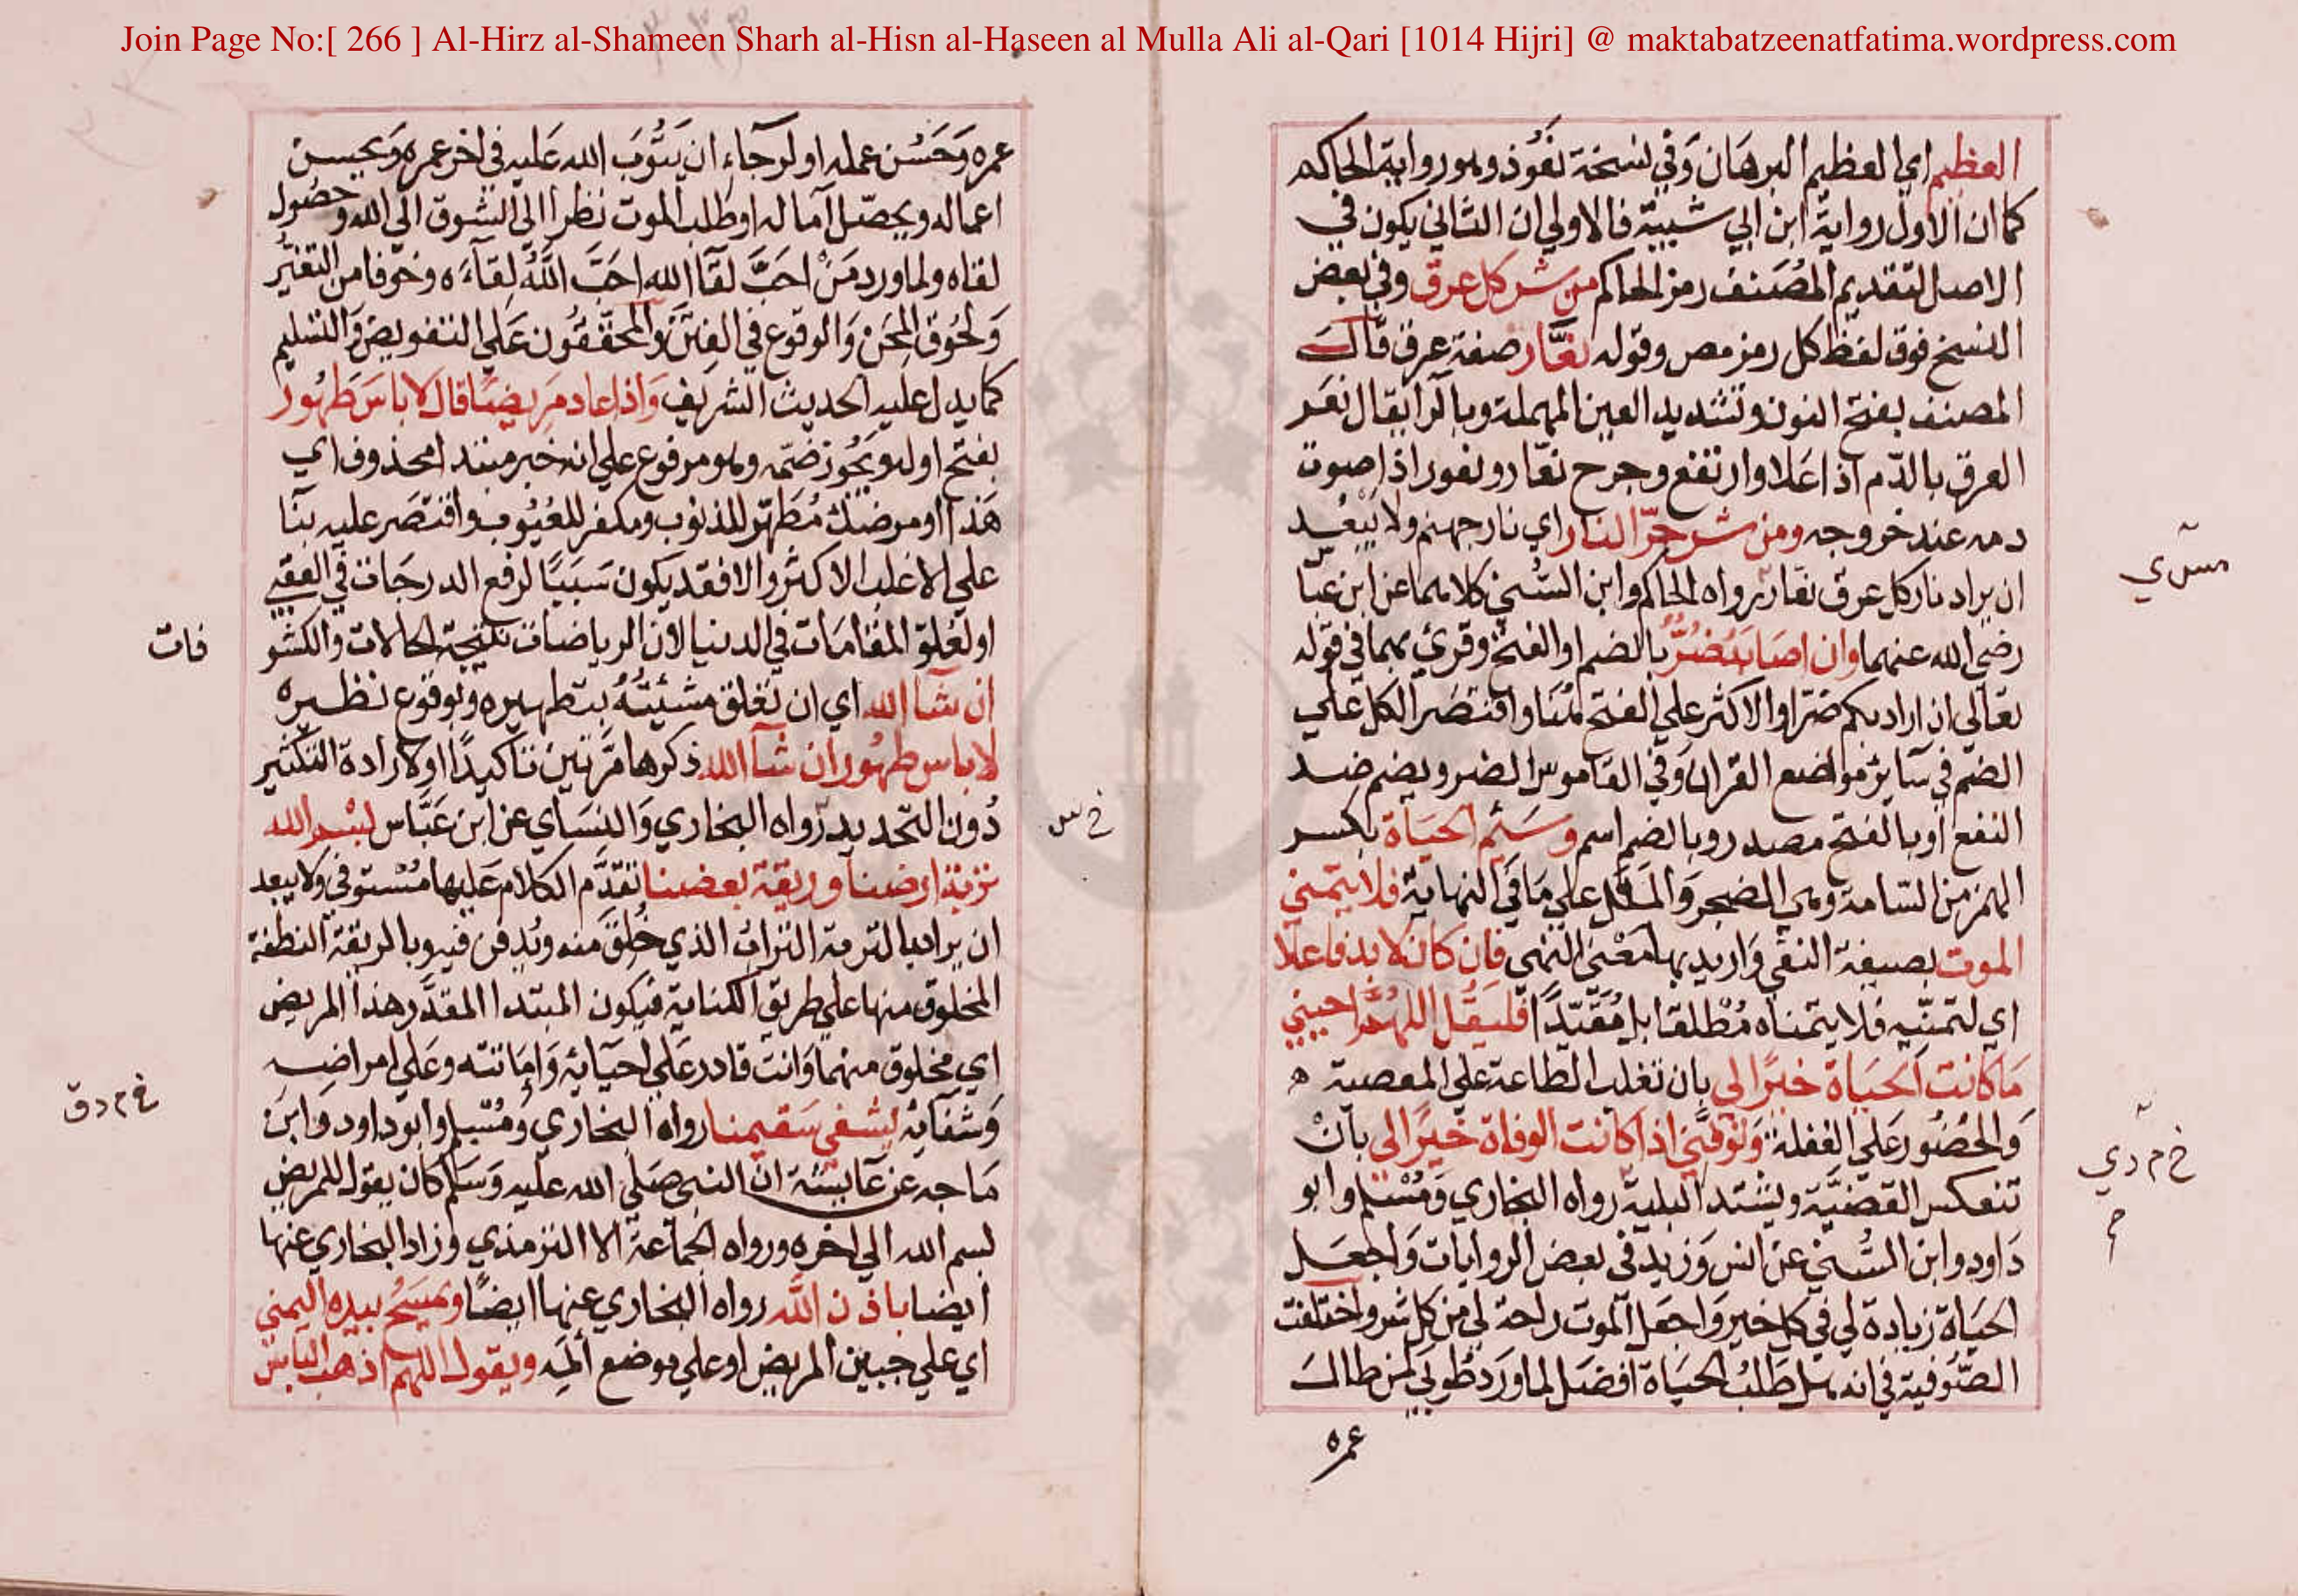 Join Page No:[ 266 ] Al-Hirz al-Shameen Sharh al-Hisn al-Haseen al Mulla Ali al-Qari [1014 Hijri] @ maktabatzeenatfatima.wordpress.com
العظيم اي العظيم البرهان وَفي نسخة نعُوذ وهو رواية الحاكم
كما ان الاول رواية ابن ابي شيبة فالاولي ان الثاني يكون في
الاصل لتقديم المُصَنف رمز الحاكم من شر كل عرق وفي بعض
النسخ فوق لفظ كل رمز مص وقوله نعَّار صفة عرق قال
المصنف بفتح النون وتشديد العين المهملة وبالرا يقال نعَر
العرق بالدّم اذا عَلا وارتفع وجرح نعّار ونعور اذا صوت
دمه عند خروجه ومن شر حرّ النار اي نار جهنم ولا يَبعُد
ان يراد نار كل عرق نعار رواه الحاكم وابن السُّني كلاهما عن ابن عبّا
رضي الله عنهما وان اصابه ضُرٌّ بالضم او الفتح وقرئ بهما في قوله
تعالي ان اراد بكم ضرا والاكثر علي الفتح هُنَا واقتصَر الكل علي
الضم في سَايرُ مواضع القران وَفي القاموس الضر ويضم ضد
النفع او بالفتح مصدر وبالضم اسم وَسَئِم الحيَاة بكسر
الهمز من السّامة وهي الضجر وَالملل علي مَا في النهاية فلا يتمني
الموت بصيغة النفي وَاريد بها مَعْني النهي فان كان لا بد فاعلا
اي لتمنّيه فلا يتمناه مُطْلقا بل مُقيّدًا فليَقُل اللهُمَّ احيني
مَا كانت الحَيَاة خيرًا لي بان تغلب الطاعة علي المعصية ه
وَالحضُور عَلي الغفلة وَتوَفَّني اذا كانت الوفاة خيرًا لي بانْ
تنعكس القضيَّة ويشتد البلية رواه البخاري وَمُسْلم وابو
دَاود وابن السُّني عن انس وَزيد في بعض الروايات وَاجعَل
الحيَاة زيادة لي في كل خير وَاجعَل الموت راحة لي من كل شر واختلفت
الصّوفية في انه هل طَلبُ الحيَاة افضَل لما ورَد طُوبي لمن طال
عمره
مس ي
خ م د ي
م
عمره وَحَسُن عمله او لرجاء ان يَتُوبَ الله عَليه في اخر عمره وَيحسن
اعماله ويحصّل آماله او طلب الموت نظرا الي الشوق الي الله وحصُول
لقاه ولما ورد مَنْ احبَّ لقا الله احَبَّ اللّهُ لِقاءَه وخوفا من التغيُّر
وَلحُوق المِحَن وَالوقوع في الفِتَن وَالمحققُون عَلي التفويض وَالتسليم
كما يدل عليه الحديث الشريف وَاذا عاد مَرِيضًا قال لا باسَ طَهُور
بفتح اوله ويجُوز ضمّه وهو مرفوع علي انه خبر مبتدا محذوف اي
هَذا او مرضك مُطهّر للذنوب ومكفر للعُيُوب واقتصَر عليه بنا
علي الاغلب الاكثر والا فقد يكون سَببًا لرفع الدرجَات في العقبي
او لعُلوّ المقامَات في الدنيا لان الرياضات نتيجة الحالات والكشو
ان شا الله اي ان تعَلق مشيئتُهُ بتطهيره وبوقوع نظيره
لا باس طهُور ان شآ الله ذكرها مرّتين تاكيدًا او لارادة التكثير
دُون التحديد رواه البخاري وَالنسَاي عن ابن عَبَّاس بسْم الله
تربة ارضنا وريقة بعضنا تقدَّم الكلام عَليها مُسْتوفي ولا يبعد
ان يراد بالتربة التراب الذي خُلِقَ منه ويُدفن فيه وبالريقة النطفة
المخلوق منها علي طريق الكناية فيكون المبتدا المقدَّر هذا المريض
اي مخلوق منهما وَانت قادر عَلي احيَائه وَاِمَاتته وعَلي امراضِه
وَشفائه يُشفي سَقيمنا رواه البخاري وَمُسْلم وابو داود وَابن
مَاجه عن عَايشة ان النبي صَلى الله عليه وَسَلم كان يقول للمريض
بسم الله الي اخره ورواه الجماعة الا الترمذي وزاد البخاري عنها
ايضا باذن اللّه رواه البخاري عنها ايضًا ويمسَحُ بيده اليمني
اي علي جبين المريض او علي موضع ألمِه ويقول اللهم اذهب الباس
فات
خ س
خ م د ق